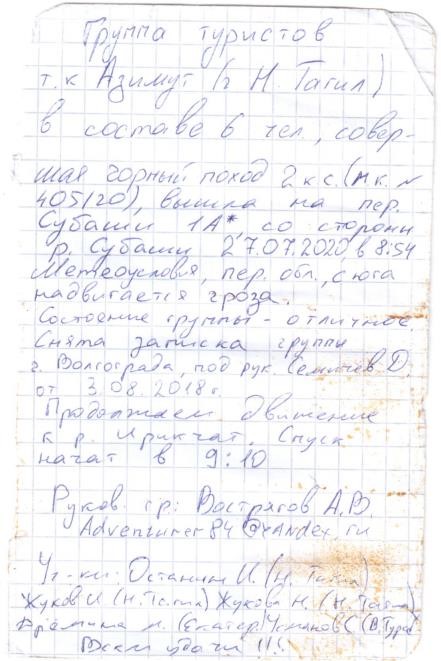 Группа туристов
т.к Азимут (г Н. Тагил)
в составе 6 чел, совер-
шая горный поход 2 к с. (м.к. №
405/20), вышла на пер.
Субаши 1А*, со стороны
р. Субаши 27.07.2020, в 8:54
Метеоусловия, пер. обл., с юга
надвигается гроза.
Состояние группы - отличное.
Снята записка группы
г. Волгограда, под рук. Семичев Д.
от 3.08.2018г.
Продолжаем движение
к р. Ирикчат. Спуск
начат в 9:10
Руков. гр: Вострягов А.В.
Adventurer84@yandex.ru
Уч-ки: Останин И. (Н. Тагил)
Жуков И (Н.Тагил) Жукова Н. (Н. Тагил)
м. (Екатер) Усманов С (В.Тура)
Всем удачи !!!